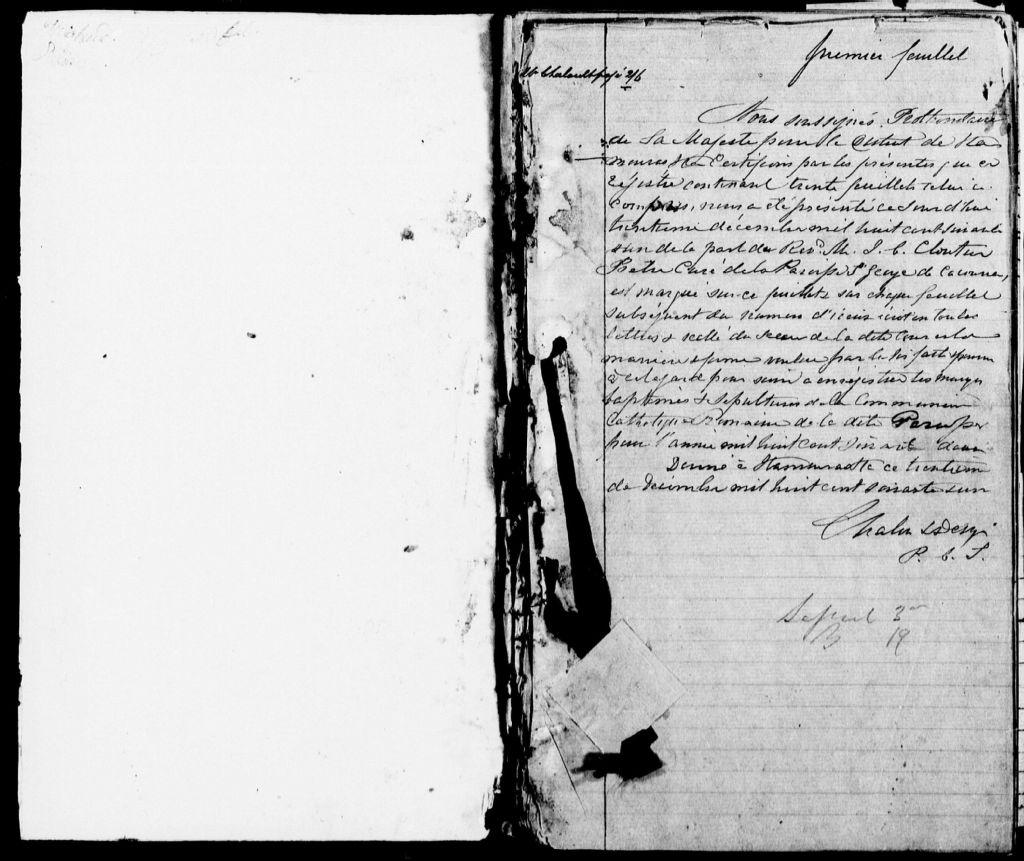 premier feuillet
Nous soussignés, Protonotaire
de Sa Majesté pour le District de Ka
mouraska Certifions par les présentes que ce
régistre contenant trente feuillets celui ci
compris, nous a été présenté ce Jourd'hui
trentieme décembre mil huit cent soixante
& un de la part du Revd. M. J. C. Cloutier
Prêtre Curé de la Paroisse St George de Cacouna,
est marqué sur ce feuillet & sur chaque feuillet
subséquent du numéro d'iceux écrit en toutes
lettres & scellé du sceau de la dite Cour en la
manière & forme voulue par la loi faite & pourvue
à cet égard pour servir à enrégistrer les mariages
baptêmes & sépultures de la Communion
Catholique & Romaine de la dite Paroisse
pour l'année mil huit cent soixante deux
Donné à Kamouraska ce trentieme
de décembre mil huit cent soixante & un
P. C. S.
Sepult 3
B 19